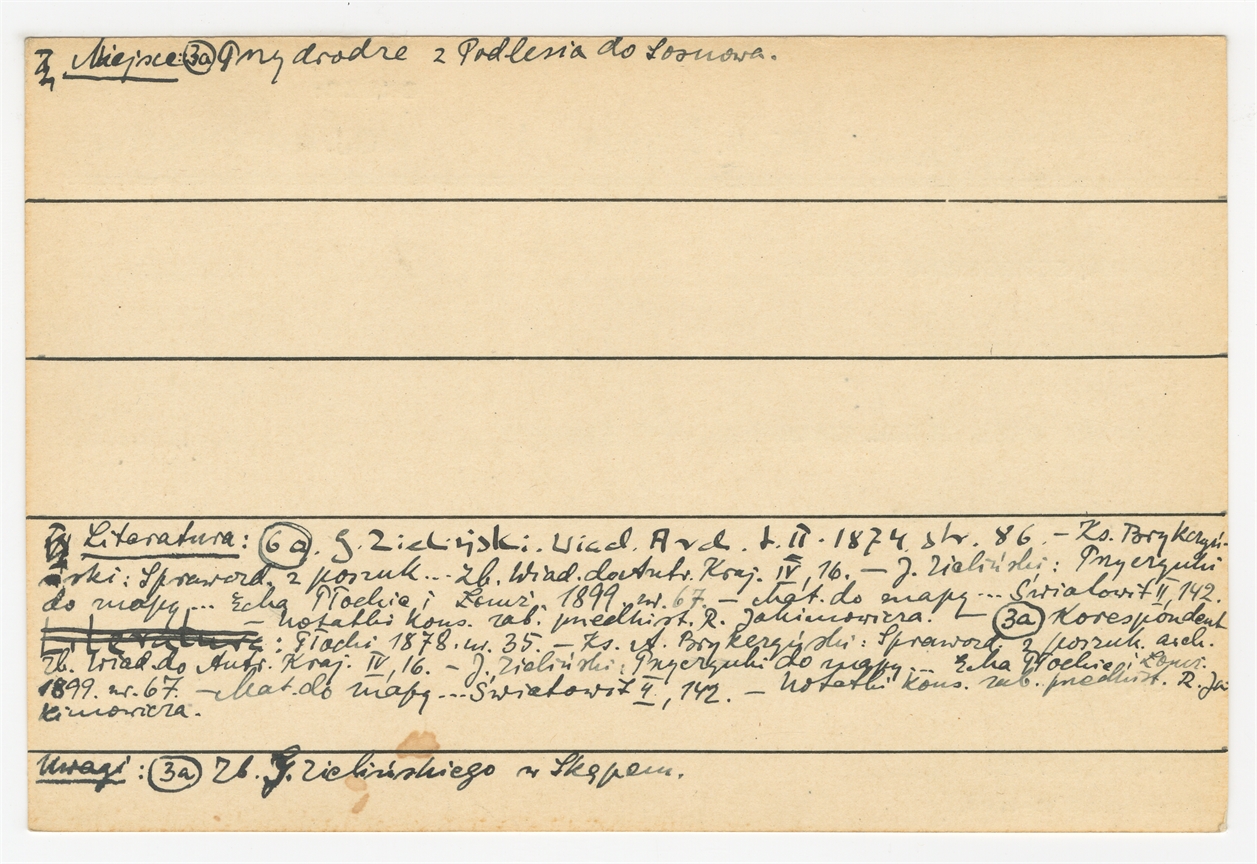 Miejsce: 3a Przy drodze z Podlesia do Sosnowa.
Literatura: 6a. G. Zieliński. Wiad. Arch. t. II. 1874 str. 86. – Ks. Brykczyń-
ski: Sprawozd. z poszuk... Zb. Wiad. do Antr. Kraj. IV, 16. – J. Zieliński: Przyczynki
do mapy... Echa Płockie i Łomż. 1899. nr. 67. – Mat. do mapy ... Światowit II, 142.
– Notatki Kons. zab. przedhist. R. Jakimowicza. – 3a Korespondent
Literatura: Płocki 1878. nr. 35. – Ks. A. Brykczyński: Sprawozd. z poszuk. arch.
Zb. Wiad. do Antr. Kraj. IV, 16. – J. Zieliński: Przyczynki do mapy... Echa Płockie i Łomż.
1899. nr. 67. – Mat. do mapy ... Światowit II, 142. – Notatki Kons. zab. przedhist. R. Ja
kimowicza.
Uwagi: 3a Zb. G. Zielińskiego w Skępem.